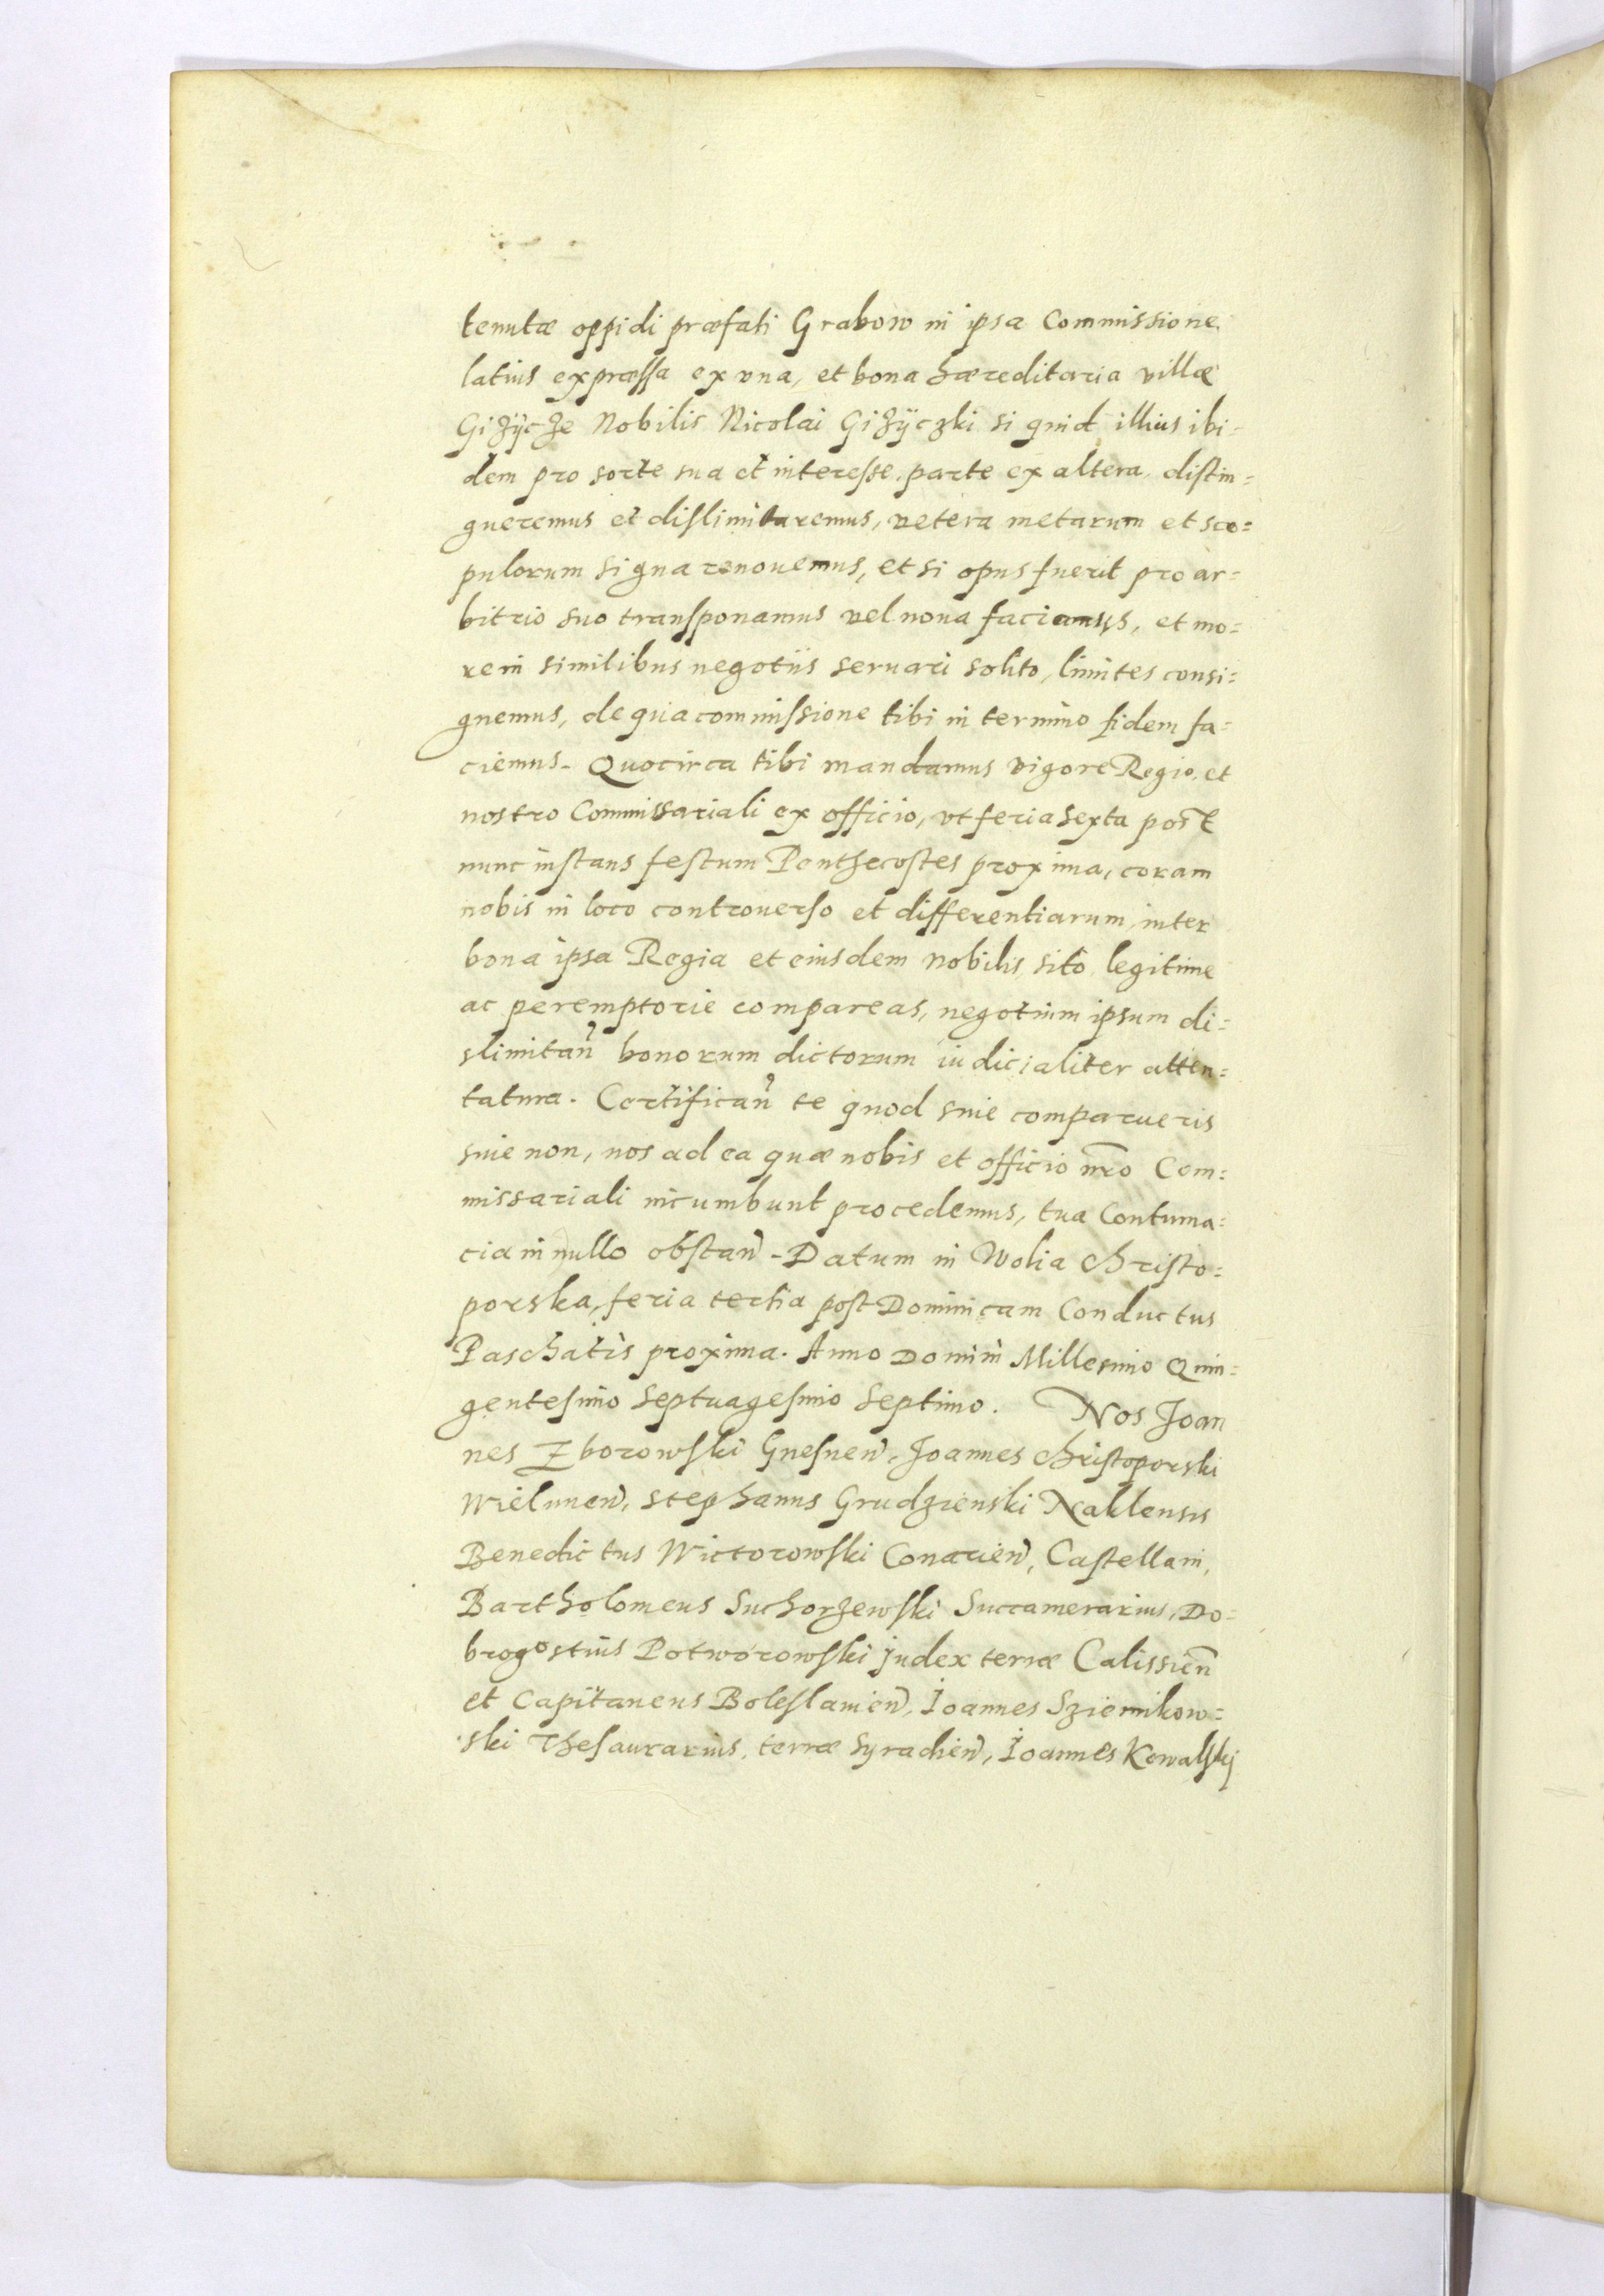 tenutæ oppidi præfati Grabow in ipsa Commissione
latius expræssa ex vna, et bona hæreditaria villæ
Giżÿcże Nobilis Nicolai Giżÿczki si quid illius ibi-
dem pro sorte sua et interesse, parte ex altera, distin=
gueremus et dislimitaremus, vetera metarum et sco=
pulorum signa renouemus, et si opus fuerit pro ar=
bitrio suo transponamus vel noua faciamus, et mo=
re in similibus negotiis seruari solito, limites consi=
gnemus, de qua commissione tibi in termino fidem fa=
ciemus. Quocirca tibi mandamus vigore Regio, et
nostro Commissariali ex officio, vt feria sexta post
nunc instans festum Penthecostes proxima, coram
nobis in loco controuerso et differentiarum, inter
bona ipsa Regia et eiusdem Nobilis, sito, legitime
ac peremptorie compareas, negotium ipsum di=
slimitan̄ bonorum dictorum iudicialiter atten=
tatura. Certifican̄ te quod siue comparueris
siue non, nos ad ea quæ nobis et officio nr̄o Com=
missariali incumbunt procedemus, tua Contuma=
cia in nullo obstan̄. Datum in Wolia Christo=
porska, feria tertia post Dominicam Conductus
Paschatis proxima. Anno Domini Millesimo Quin=
gentesimo Septuagesimo Septimo. Nos Joan
nes Zborowski Gnesnen̄, Joannes Christoporski
Wielunen̄, Stephanus Grudzienski Naklensis
Benedictus Wictorowski Conarien̄, Castellani,
Bartholomeus Suchorżewski Succamerarius, Do=
brogostius Potworowski Judex terræ Calissien̄
et Capitaneus Boleslauien̄, Joannes Sziemikow=
ski Thesaurarius, terræ Syradien̄, Joannes Kowalskj